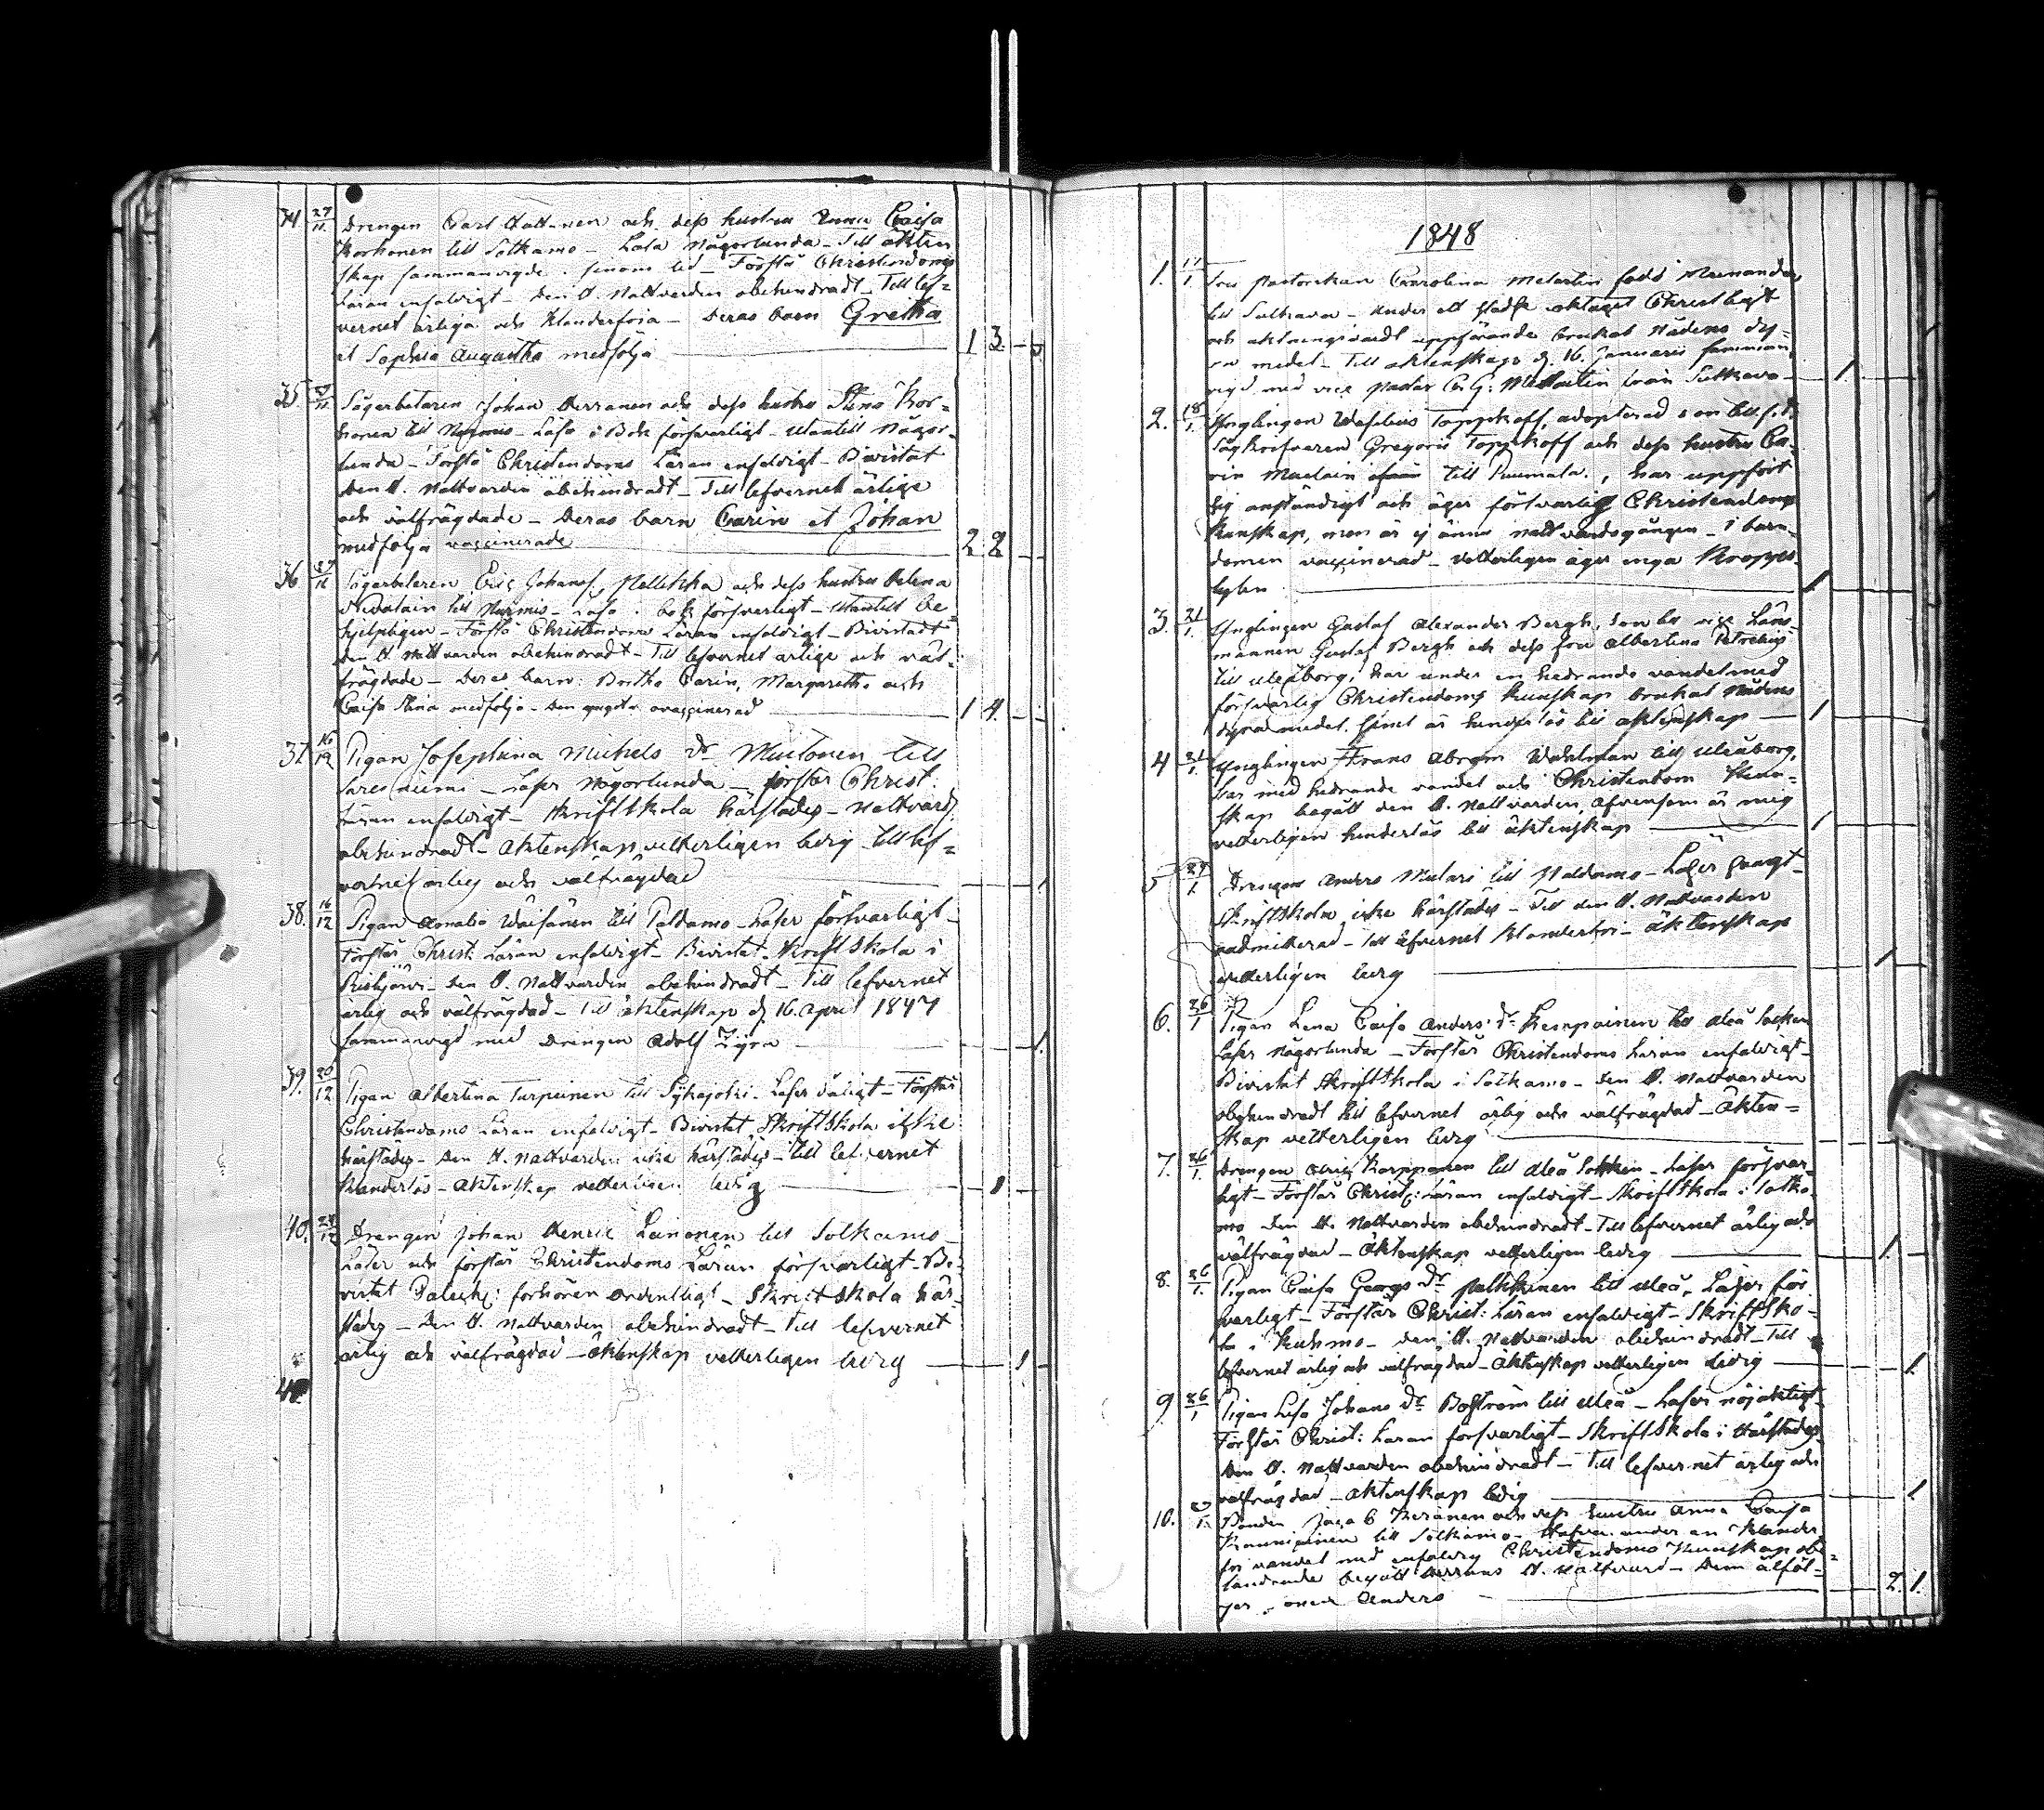 34 27/11 Drengen Carl Hattunen och dess hustru Anna Caisa
Korhonen till Sotkamo – Läsa någorlunda – Till äkten
skap sammanvigde – Förstå Christendoms
Läran enfaldigt – Den H. Nattvarden obehindradt – Till lef=
vernet ärliga och klanderfria – Deras barn Gretha
et Sophia Augustha medfölja 1 3
35. /11 Johan Herranen och dess hustru Stina Kor=
honen till Nurmis – Läsa i Bok försvarligt – Utantill någor=
lunda – Förstå Christendoms Läran enfaldigt – Bivistat
Den H. Nattvarden obehindradt – Till lefvernet ärlige
och välfrägdade – Deras barn Carin et Johan
medfölja vaccinerade 2 2
36 27/11 Eric Johansson och dess hustru Helena
till Nurmis – Läsa i bok försvarligt – Utantill be
hjelpligen – Förstå Christendoms Läran enfaldigt – Bivistadt
den H. Nattvarden obehindradt – Till lefvernet ärlige och väl=
frägdade – Deras barn: Carin, Margaretha och
Caisa Stina medfölja – Den yngsta ovaccinerad 1 4.
37 16/12 Pigan Josephina Michels Dr Mustonen till
– Läser Någorlunda – förstår Christ:
Läran enfaldigt – Skriftskola härstädes – Nattvard
obehindradt – Äktenskap vetterligen ledig – till lef=
vernet ärlig och välfrägdad 1
38. 16/12 Pigan Amalia Väisänen till Paldamo – Läser försvarligt –
Förstår Christ: Läran enfaldigt – Bivistat Skriftskola i
– Den H. Nattvarden obehindradt – Till lefvernet
ärlig och välfrägdad – Till äktenskap d. 16. April 1847
sammanvigd med Drengen Adolf 1.
39. 20/12 Pigan Albertina Turpeinen till Sijkajoki – Läser dåligt – Förstår
Christendoms Läran enfaldigt – Bivistat Skriftskola icke
härstädes – Den H. Nattvarden icke härstädes – Till lefvernet
klanderlös – Äktenskap vetterligen ledig 1
40. /12 Drengen Johan Henric Leinonen till Sotkamo –
Läser och förstår Christendoms Läran försvarligt – Bi
vistat förhören ordentligt – Skriftskola här
städes – Den H. Nattvarden obehindradt – Till lefvernet
ärlig och välfrägdad – Äktenskap vetterligen ledig 1
1848
1. 17/1. Fru Pastorskan Carolina Melartin född Alcenander
till Sulkava – Under ett städse iakttaget Christligt
och aktningsvärdt uppförande brukat Nådens dy=
ra medel – Till äktenskap d. 16. Januarii samman
vigd med vice Pastor C. G. Melartin från Sulkava – 1.
2. 18/1. Ynglingen Toppkoff, adopterad son till f. d.
Gregorii Toppkoff och dess hustru Ca
rin till Puumala., har uppfört
sig anständigt och äger försvarlig Christendoms
kunskap, men är ej ännu nattvardsgången – i barn
domen vaccinerad – Vetterligen äger inga Kroppes=
lyten 1
3. 21/1. Ynglingen Gustaf Alexander Bergh, Son till vice Läns=
mannen Gustaf Bergh och dess fru Albertina
till Uleåborg, har under en hedrande vandel med
försvarlig Christendoms kunskap brukat Nådens
dyra medel. Samt är hinderlös till äktenskap – 1
4 21/1. Ynglingen Frans Abram Wahlman till Uleåborg,
Har med hedrande vandel och Christendom kun=
skap begått den H. Nattvarden, äfvensom är mig
vetterligen hinderlös till äktenskap 1
5 24/1 Drengen Anders Mulari till Paldamo – Läser svagt –
Skriftskola icke härstädes – Till den H. Nattvarden
admitterad – Till lefvernet klanderfri – äktenskap
vetterligen ledig 1
6. 26/1 Pigan Lena Caisa Anders Dr Kemppainen till Uleå Socken
Läser Någorlunda – Förstår Christendoms Läran enfaldigt –
Bivistat Skriftskola i Sotkamo – Den H. Nattvarden
obehindradt till lefvernet ärlig och välfrägdad – Äkten=
skap vetterligen ledig
7. 26/1. Drengen Karppanen till Uleå Socken – Läser försvar=
ligt – Förstår Christ: Läran enfaldigt – Skriftskola i Sotka
mo Den H. Nattvarden obehindradt – Till lefvernet ärlig och
välfrägdad – Äktenskap vetterligen ledig 1.
8. 26/1. Pigan Caisa Georgs Dr till Uleå, Läser för
svarligt – Förstår Christ: Läran enfaldigt – Skriftsko=
la i Kuhmo – Den H. Nattvarden obehindradt – Till
lefvernet ärlig och välfrägdad – Äktenskap vetterligen ledig 1.
9 26/1 Pigan Lisa Johans Dr Boström till Uleå – Läser nöjaktigt –
Förstår Christ: Läran försvarligt – Skriftskola i härstädes
Den H. Nattvarden obehindradt – Till lefvernet ärlig och
välfrägdad – Äktenskap ledig 1.
10. Bonden Keränen och dess hustru Anna Caisa
till Sotkamo – Hafva under en klander
fri vandel med enfaldig Christendoms kunskap obe=
hindrade begått Herrans H. Nattvard – Dem åtföl=
jer sonen Anders 2. 1.